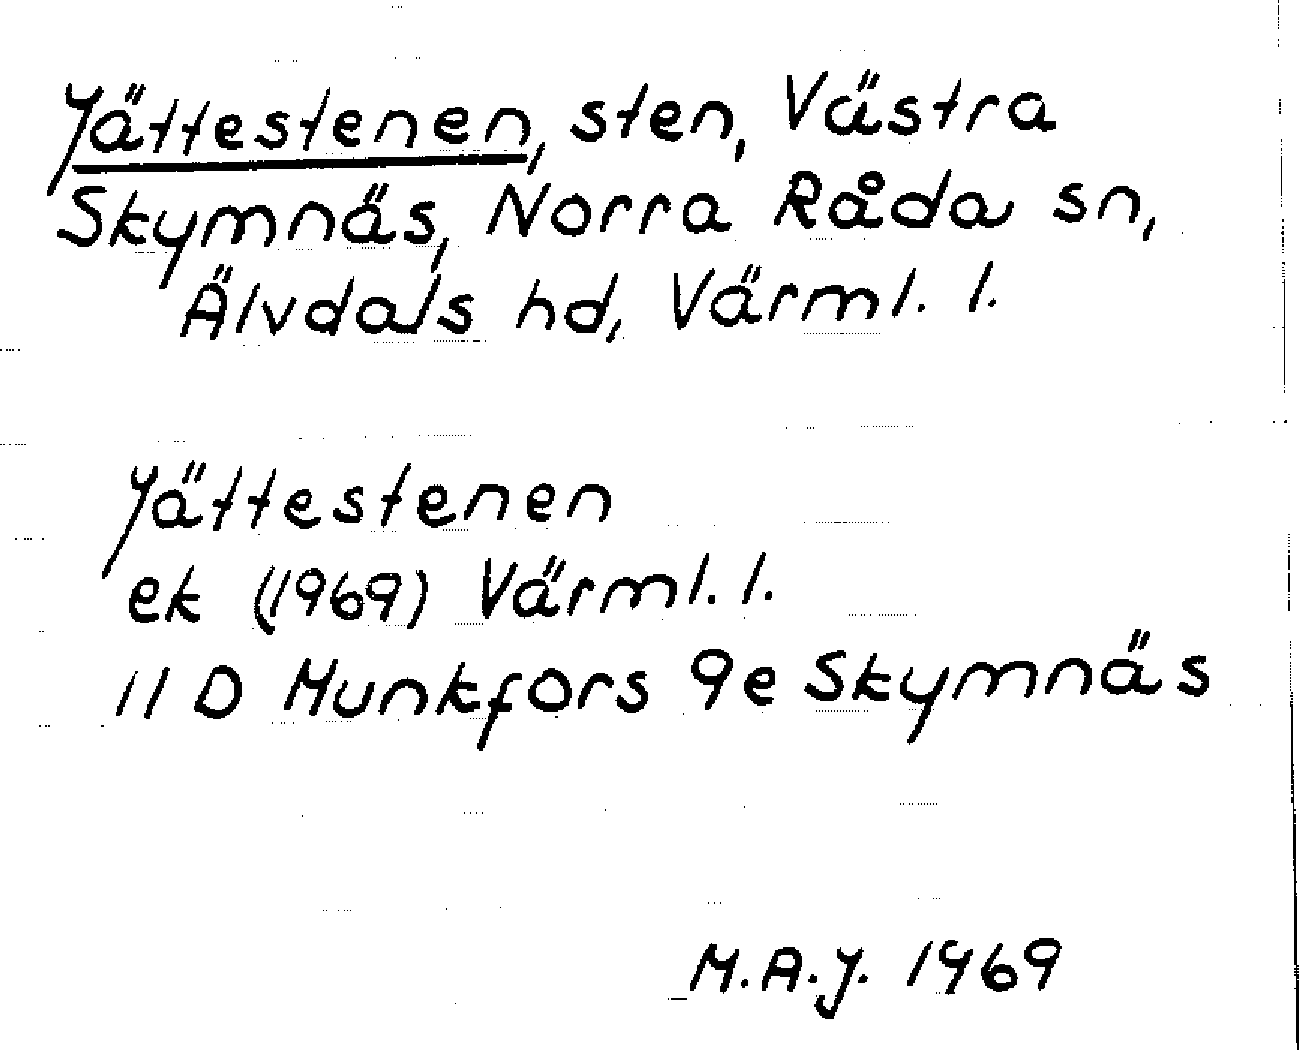 Jättestenen, sten, Västra
Skymnäs, Norra Råda sn,
Älvdals hd, Värml. l.
Jättestenen
ek (1969) Värml. l.
11 D Munkfors 9e Skymnäs
M.A.J. 1969